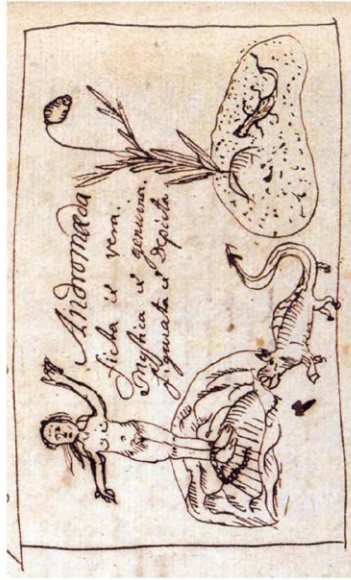 Andromeda
ficta et vera.
Mystica et genuina.
figurata et depicta